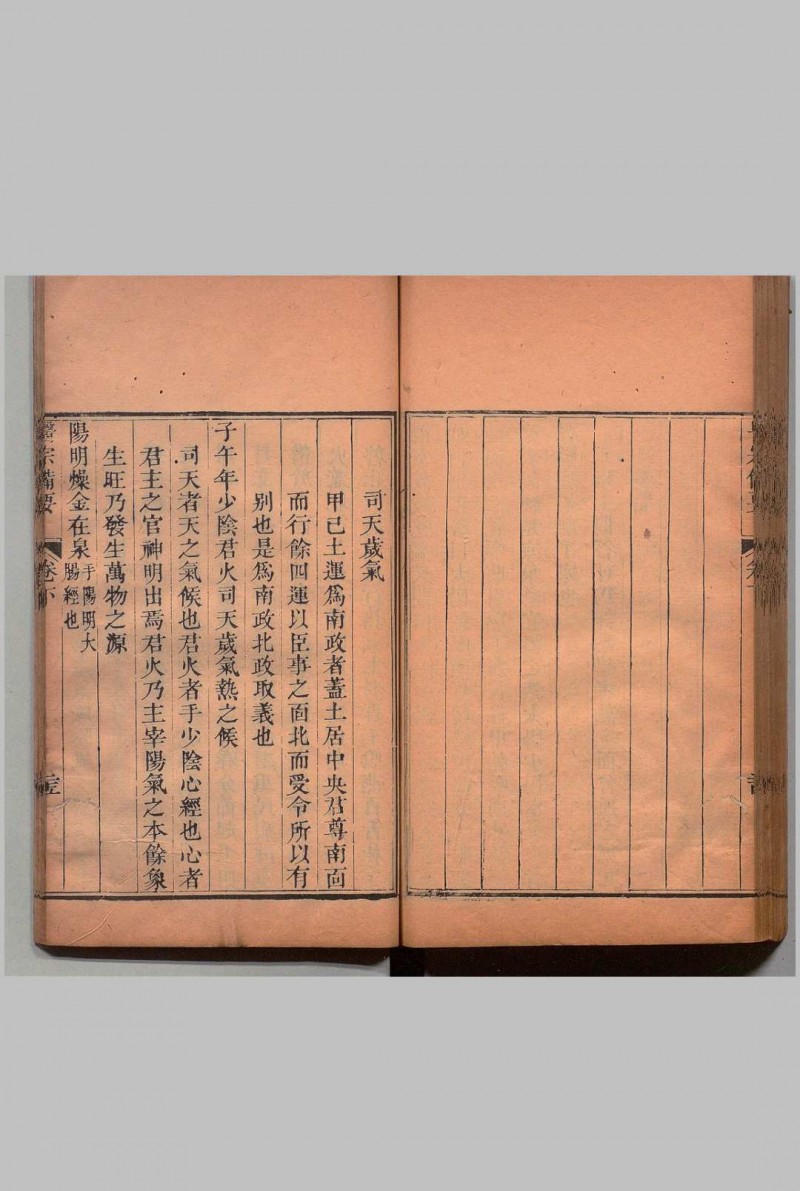 司天歲氣
甲己土運爲南政者蓋土居中央君尊南面
而行餘四運以臣事之面北而受令所以有
别也是爲南政北政取義也
子午年少陰君火司天歲氣熱之候
司天者天之氣候也君火者手少陰心經也心者
君主之官神明出焉君火乃主宰陽氣之本餘象
生旺乃發生萬物之源
陽明燥金在泉手陽明大
腸經也
醫宗備要
卷下